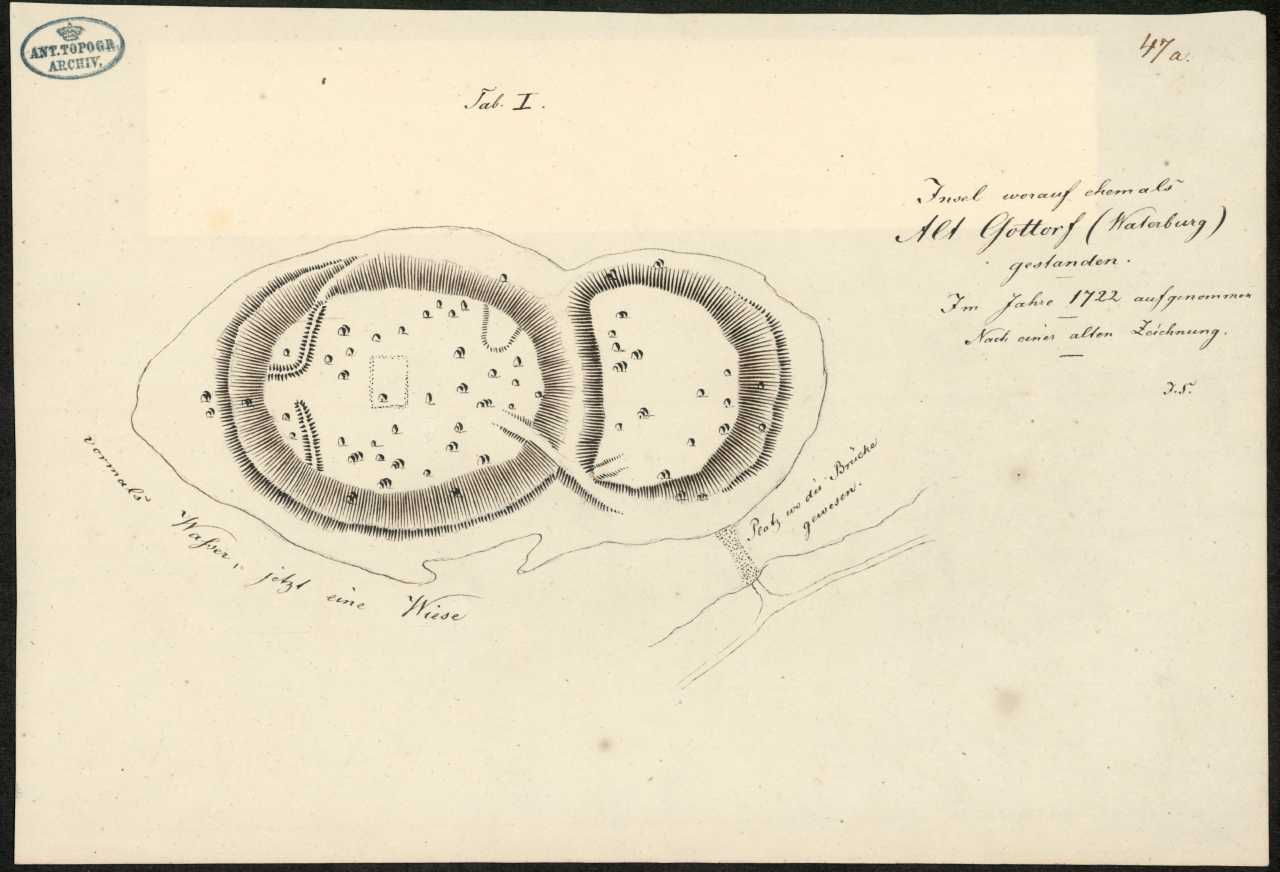 ANT. TOPOGR.
ARCHIV.
47a.
Tab. I.
Insel worauf ehemals
Alt Gottorf (Waterburg)
gestanden.
Im Jahre 1722 aufgenommen
Nach einer alten Zeichnung.
Platz wo die Brücke
gewesen.
vormals Wasser, jetzt eine Wiese